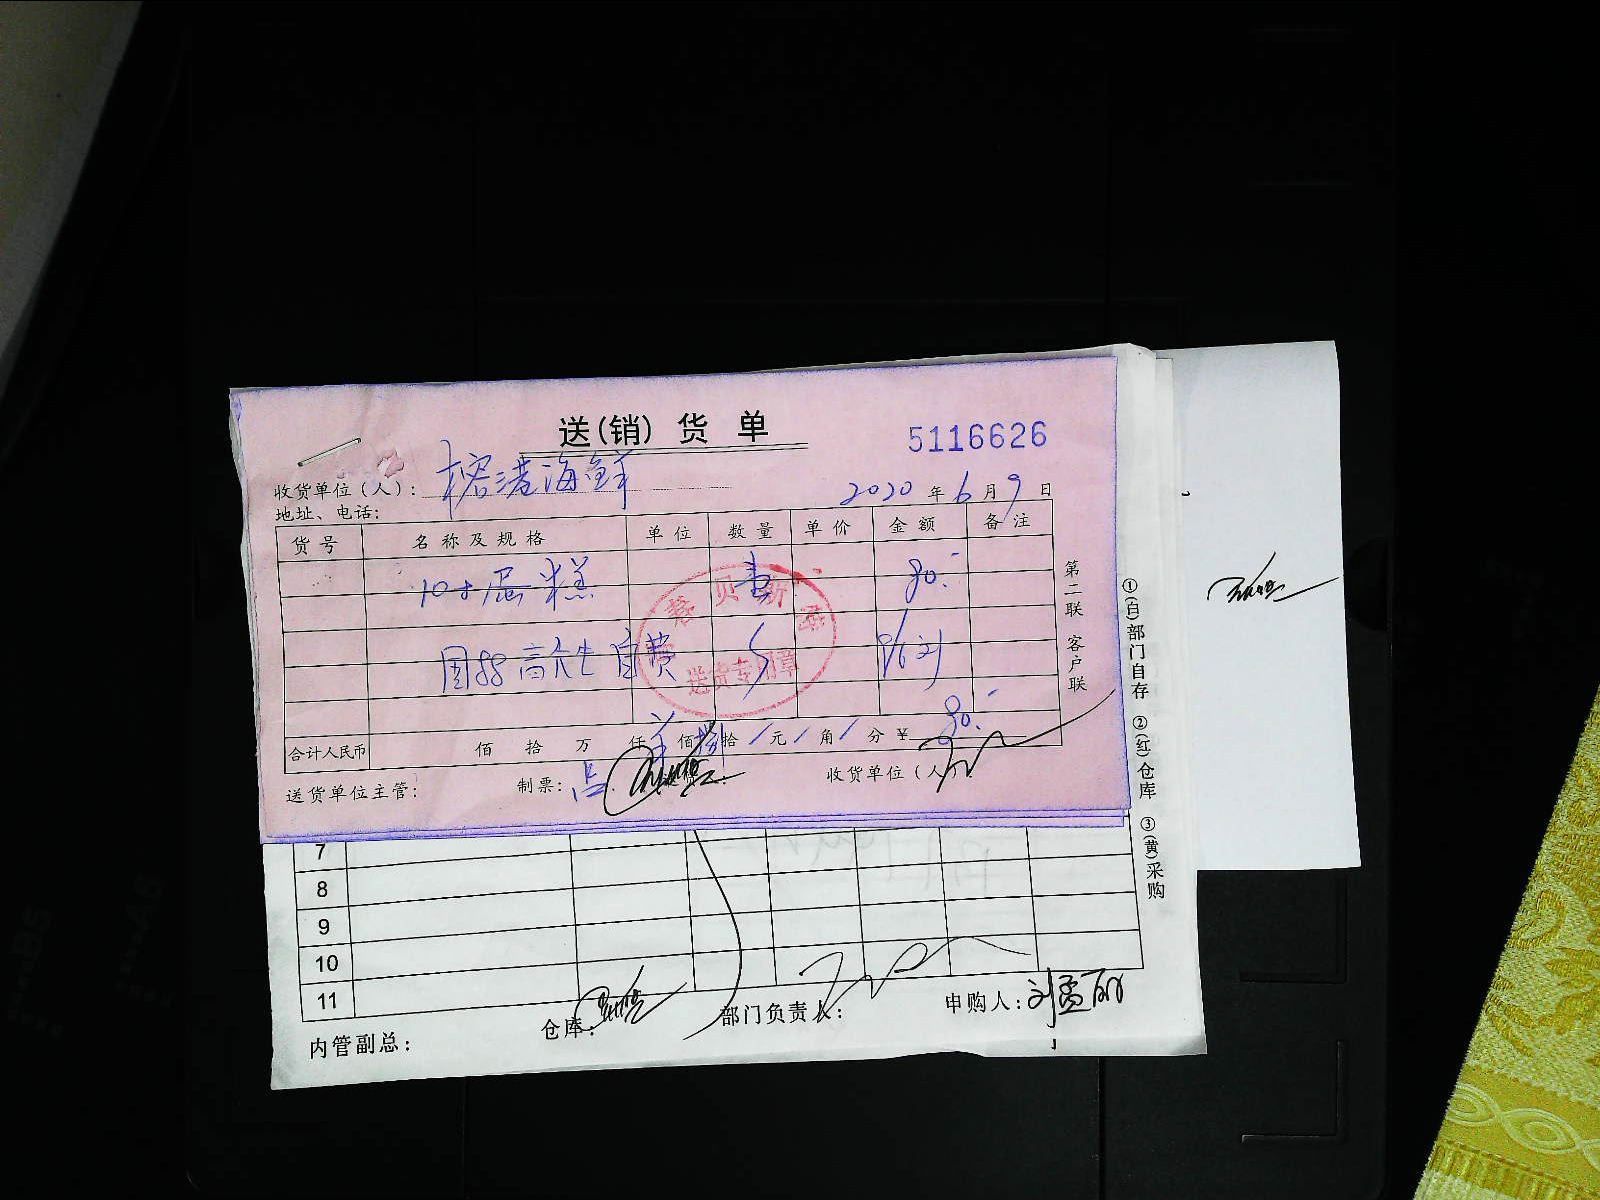 送(销)货单
5116626
收货单位(人): 榕港海鲜
2020年6月9日
地址、电话:
货号 名称及规格 单位 数量 单价 金额 备注
10寸蛋糕 80.-
高先生自费
贝斯
送货专用章
合计人民币 佰 拾 万 仟 佰 捌拾 / 元 / 角 / 分 ¥ 80.-
送货单位主管: 制票: 收货单位(人):
第二联 客户联
①(白)部门自存 ②(红)仓库 ③(黄)采购
7
8
9
10
11
内管副总: 仓库: 部门负责人: 申购人: 刘孟丽